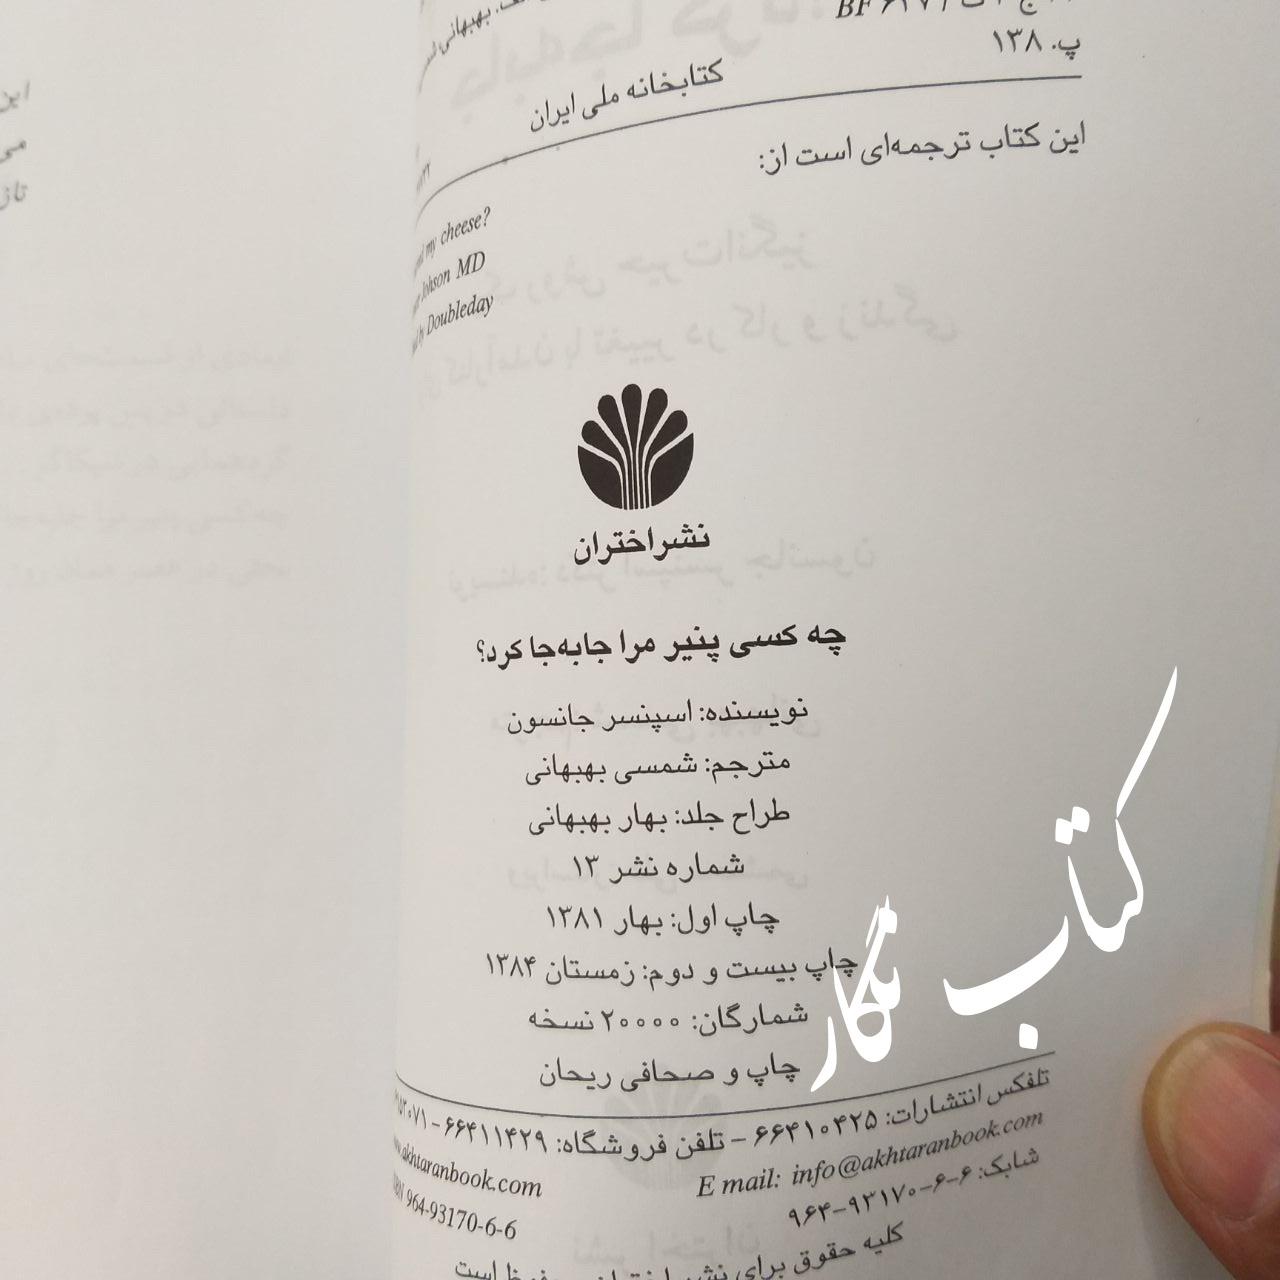 پ. ۱۳۸
کتابخانه ملی ایران
این کتاب ترجمه‌ای است از:
my cheese?
Johson MD
by Doubleday
نشر اختران
چه کسی پنیر مرا جابه‌جا کرد؟
نویسنده: اسپنسر جانسون
مترجم: شمسی بهبهانی
طراح جلد: بهار بهبهانی
شماره نشر ۱۳
چاپ اول: بهار ۱۳۸۱
چاپ بیست و دوم: زمستان ۱۳۸۴
شمارگان: ۲۰۰۰۰ نسخه
چاپ و صحافی ریحان
کتاب نگار
تلفکس انتشارات: ۶۶۴۱۰۴۲۵ – تلفن فروشگاه: ۶۶۴۱۱۴۲۹ –
E mail: info@akhtaranbook.com
akhtaranbook.com
شابک: ۶-۶-۹۳۱۷۰-۹۶۴
964-93170-6-6
کلیه حقوق برای نشر اختران محفوظ است
این
می